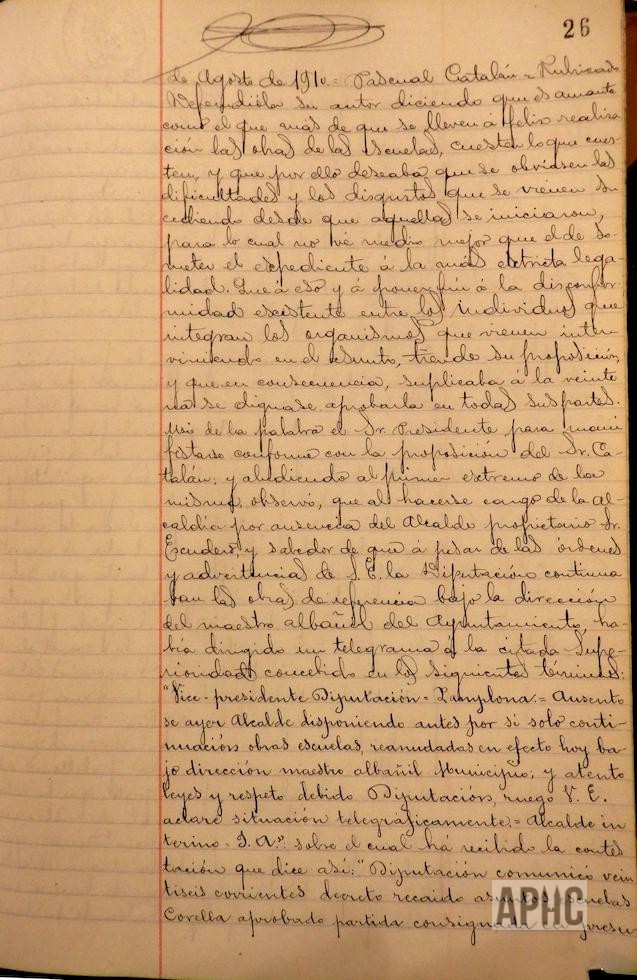 26
de Agosto de 1910.= Pascual Catalán = Rubricado
Defendióla su autor diciendo que es amante
como el que más de que se lleven á feliz realiza
ción las obras de las escuelas, cuesten lo que cues-
ten, y que por ello deseaba que se obviasen las
dificultades y los disgustos que se vienen su
cediendo desde que aquellas se iniciaron,
para lo cual no vé medio mejor que el de so-
meter el expediente á la más estricta lega-
lidad. Que á eso y á poner fin á la disconfor-
midad existente entre los individuos que
integran los organismos que vienen inter-
viniendo en el asunto, tiende su proposición,
y que en consecuencia, suplicaba á la veinte
na se dignase aprobarla en todas sus partes.
Usó de la palabra el Sr. Presidente para mani
festarse conforme con la proposición del Sr. Ca-
talán; y aludiendo al primer extremo de la
misma, observó, que al hacerse cargo de la Al-
caldía por ausencia del Alcalde propietario Sr.
Escudero, y sabedor de que á pesar de las órdenes
y advertencias de S. E. la Diputación continua
ban las obras de referencia bajo la dirección
del maestro albañil del Ayuntamiento, ha-
bía dirigido un telegrama á la citada Supe-
rioridad concebido en los siguientes términos:
"Vice-presidente Diputación = Pamplona.= Ausentó
se ayer Alcalde disponiendo antes por sí solo conti-
nuación obras escuelas, reanudadas en efecto hoy ba-
jo dirección maestro albañil Municipio; y atento
leyes y respeto debido Diputación, ruego V. E.
aclare situación telegráficamente.= Alcalde in
terino = sobre el cual há recibido la contes
tación que dice así: "Diputación comunicó vein
tiseis corrientes decreto recaido asuntos escuelas
Corella aprobado partida consignada en presu
APHC